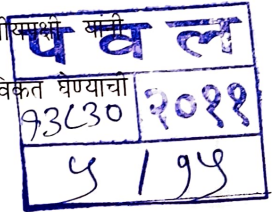 यांनी
प व ल
विकत घेण्याची
१३८३० २०११
५ / १५